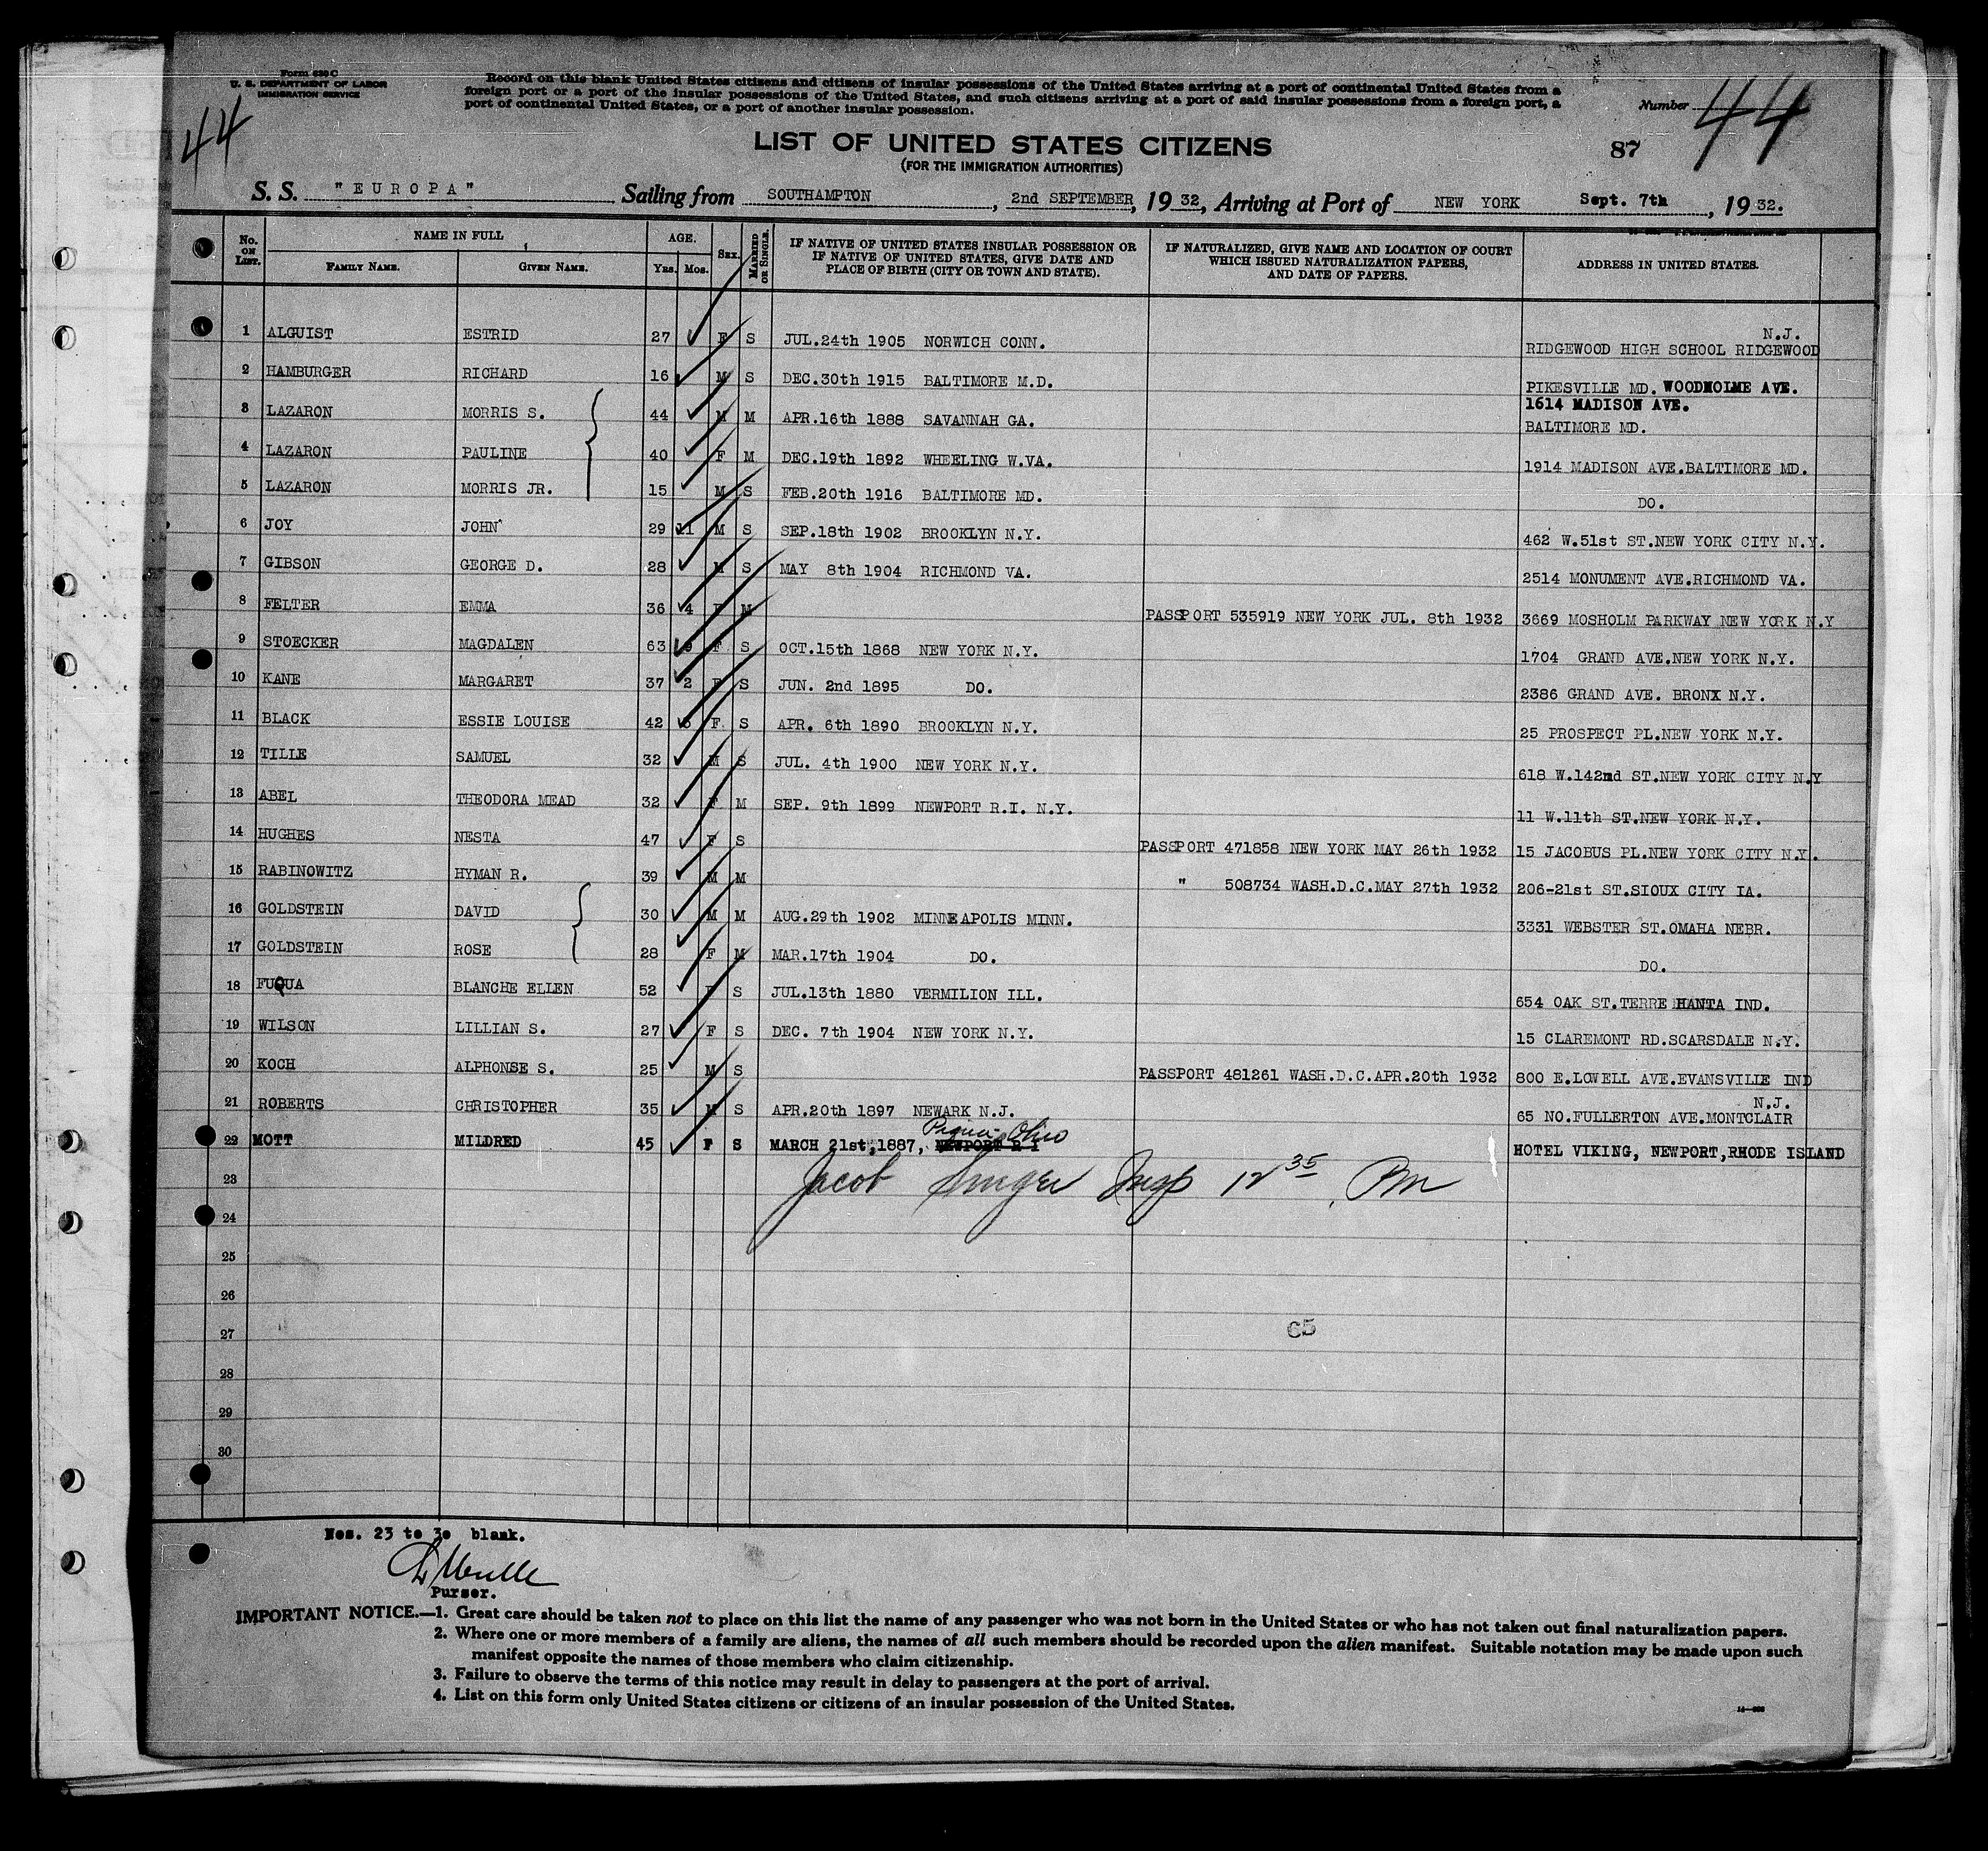 Form 630 C
U. S. DEPARTMENT OF LABOR
IMMIGRATION SERVICE
Record on this blank United States citizens and citizens of insular possessions of the United States arriving at a port of continental United States from a
foreign port or a port of the insular possessions of the United States, and such citizens arriving at a port of said insular possessions from a foreign port, a
port of continental United States, or a port of another insular possession.
Number 44
44
LIST OF UNITED STATES CITIZENS
87
(FOR THE IMMIGRATION AUTHORITIES)
S. S. "EUROPA" Sailing from SOUTHAMPTON, 2nd SEPTEMBER, 1932, Arriving at Port of NEW YORK Sept. 7th, 1932.
No. ON LIST. NAME IN FULL FAMILY NAME. GIVEN NAME. AGE. YRS. MOS. SEX. MARRIED OR SINGLE. IF NATIVE OF UNITED STATES INSULAR POSSESSION OR IF NATIVE OF UNITED STATES, GIVE DATE AND PLACE OF BIRTH (CITY OR TOWN AND STATE). IF NATURALIZED, GIVE NAME AND LOCATION OF COURT WHICH ISSUED NATURALIZATION PAPERS, AND DATE OF PAPERS. ADDRESS IN UNITED STATES.
1 ALGUIST ESTRID 27 F S JUL.24th 1905 NORWICH CONN. RIDGEWOOD HIGH SCHOOL RIDGEWOOD N.J.
2 HAMBURGER RICHARD 16 M S DEC.30th 1915 BALTIMORE M.D. PIKESVILLE MD. WOODHOLME AVE.
3 LAZARON MORRIS S. 44 M M APR.16th 1888 SAVANNAH GA. 1614 MADISON AVE. BALTIMORE MD.
4 LAZARON PAULINE 40 F M DEC.19th 1892 WHEELING W.VA. 1914 MADISON AVE.BALTIMORE MD.
5 LAZARON MORRIS JR. 15 M S FEB.20th 1916 BALTIMORE MD. DO.
6 JOY JOHN 29 11 M S SEP.18th 1902 BROOKLYN N.Y. 462 W.51st ST.NEW YORK CITY N.Y.
7 GIBSON GEORGE D. 28 M S MAY 8th 1904 RICHMOND VA. 2514 MONUMENT AVE.RICHMOND VA.
8 FELTER EMMA 36 4 F M PASSPORT 535919 NEW YORK JUL. 8th 1932 3669 MOSHOLM PARKWAY NEW YORK N.Y
9 STOECKER MAGDALEN 63 9 F S OCT.15th 1868 NEW YORK N.Y. 1704 GRAND AVE.NEW YORK N.Y.
10 KANE MARGARET 37 2 F S JUN. 2nd 1895 DO. 2386 GRAND AVE. BRONX N.Y.
11 BLACK ESSIE LOUISE 42 5 F S APR. 6th 1890 BROOKLYN N.Y. 25 PROSPECT PL.NEW YORK N.Y.
12 TILLE SAMUEL 32 M S JUL. 4th 1900 NEW YORK N.Y. 618 W.142nd ST.NEW YORK CITY N.Y
13 ABEL THEODORA MEAD 32 F M SEP. 9th 1899 NEWPORT R.I. N.Y. 11 W.11th ST.NEW YORK N.Y.
14 HUGHES NESTA 47 F S PASSPORT 471858 NEW YORK MAY 26th 1932 15 JACOBUS PL.NEW YORK CITY N.Y.
15 RABINOWITZ HYMAN R. 39 M M " 508734 WASH.D.C.MAY 27th 1932 206-21st ST.SIOUX CITY IA.
16 GOLDSTEIN DAVID 30 M M AUG.29th 1902 MINNEAPOLIS MINN. 3331 WEBSTER ST.OMAHA NEBR.
17 GOLDSTEIN ROSE 28 F M MAR.17th 1904 DO. DO.
18 FUQUA BLANCHE ELLEN 52 F S JUL.13th 1880 VERMILION ILL. 654 OAK ST.TERRE HANTA IND.
19 WILSON LILLIAN S. 27 F S DEC. 7th 1904 NEW YORK N.Y. 15 CLAREMONT RD.SCARSDALE N.Y.
20 KOCH ALPHONSE S. 25 M S PASSPORT 481261 WASH.D.C.APR.20th 1932 800 E.LOWELL AVE.EVANSVILLE IND
21 ROBERTS CHRISTOPHER 35 M S APR.20th 1897 NEWARK N.J. 65 NO.FULLERTON AVE.MONTCLAIR N.J.
22 MOTT MILDRED 45 F S MARCH 21st,1887, NEWPORT R I Piqua Ohio HOTEL VIKING, NEWPORT,RHODE ISLAND
23 Jacob Singer Insp 12 35 Pm
24
25
26
27 65
28
29
30
Nos. 23 to 30 blank.
Purser.
IMPORTANT NOTICE.—1. Great care should be taken not to place on this list the name of any passenger who was not born in the United States or who has not taken out final naturalization papers.
2. Where one or more members of a family are aliens, the names of all such members should be recorded upon the alien manifest. Suitable notation may be made upon such
manifest opposite the names of those members who claim citizenship.
3. Failure to observe the terms of this notice may result in delay to passengers at the port of arrival.
4. List on this form only United States citizens or citizens of an insular possession of the United States.